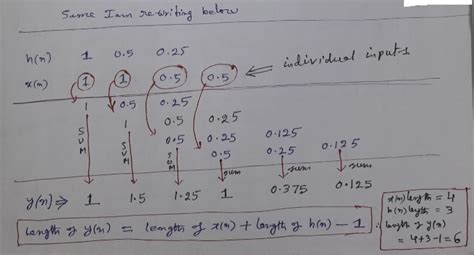 Same I am re-writing below
h(n) 1 0.5 0.25
x(n) 1 1 0.5 0.5 individual inputs
1 0.5 0.25
1 0.5 0.25
0.5 0.25 0.125
0.5 0.25 0.125
SUM SUM SUM sum sum sum
y(n) ⇒ 1 1.5 1.25 1 0.375 0.125
Length of y(n) = length of x(n) + length of h(n) - 1
x(n) length = 4
h(n) length = 3
∴ length of y(n)
= 4+3-1=6